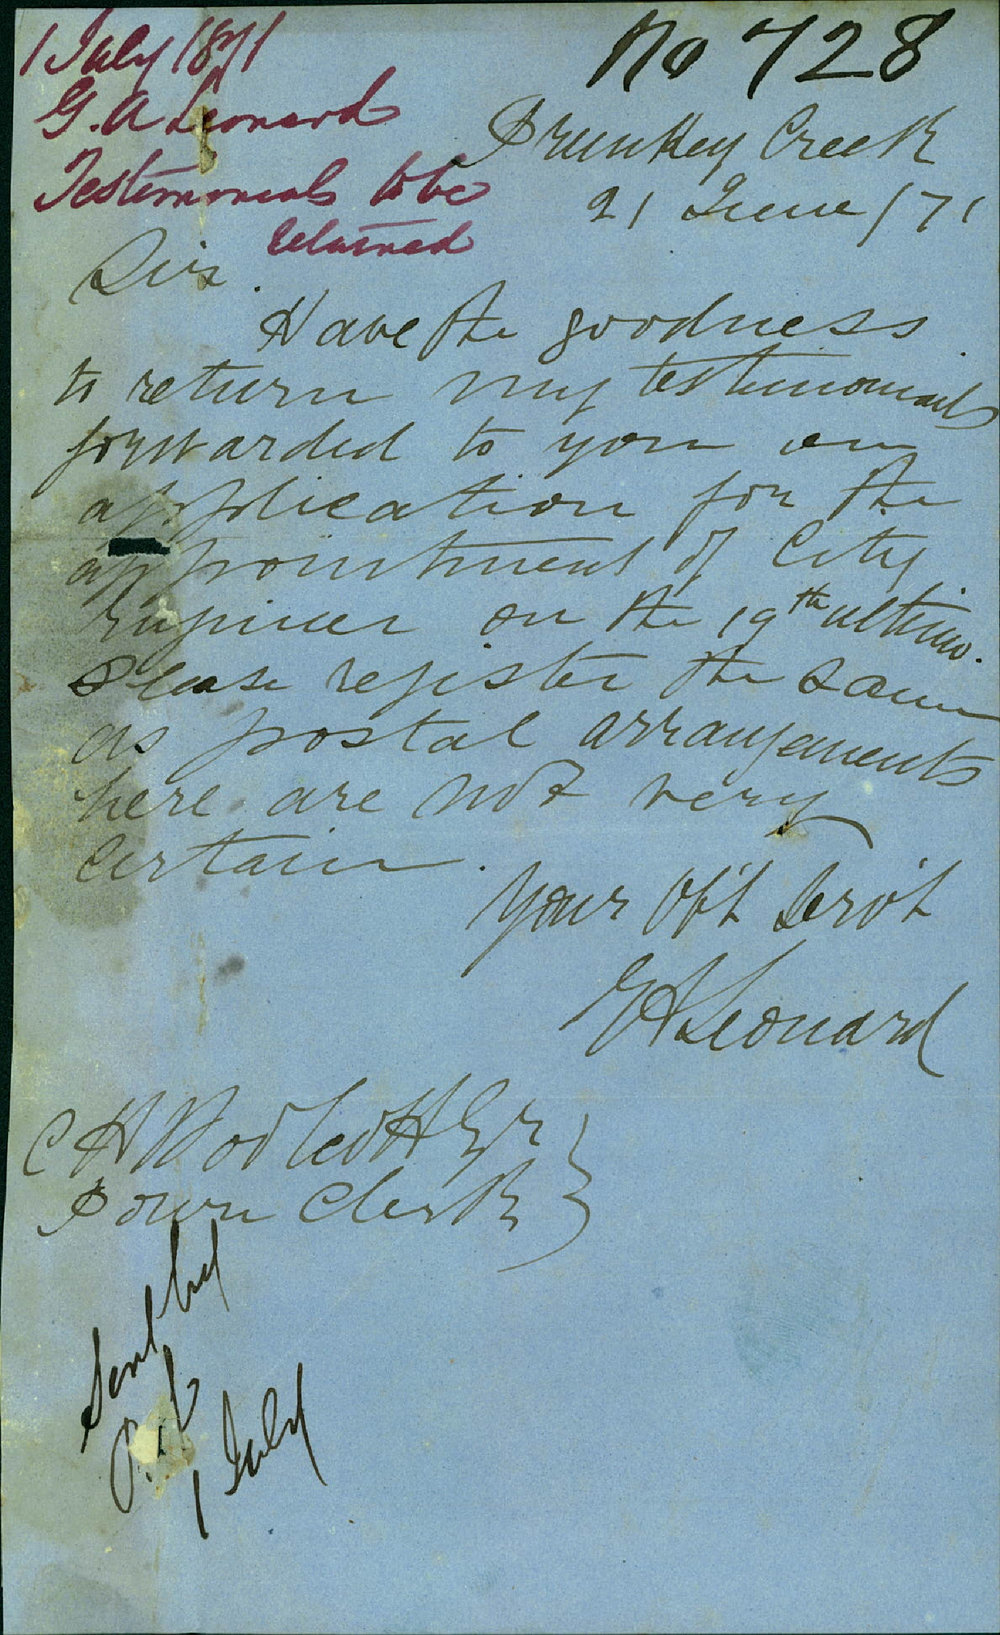 1 July 1871
G. A Leonard
Testimonials to be
returned
No 728
Trunkey Creek
21 June /71
Sir.
Have the goodness
to return my testimonials
forwarded to you on
application for the
appointment of City
Engineer on the 19th ultimo.
Please register the same
as postal arrangements
here are not very
certain.
Your Ob't Serv't
G A Leonard
C H Woolcott Esqr
Town Clerk
Sent by
1 July